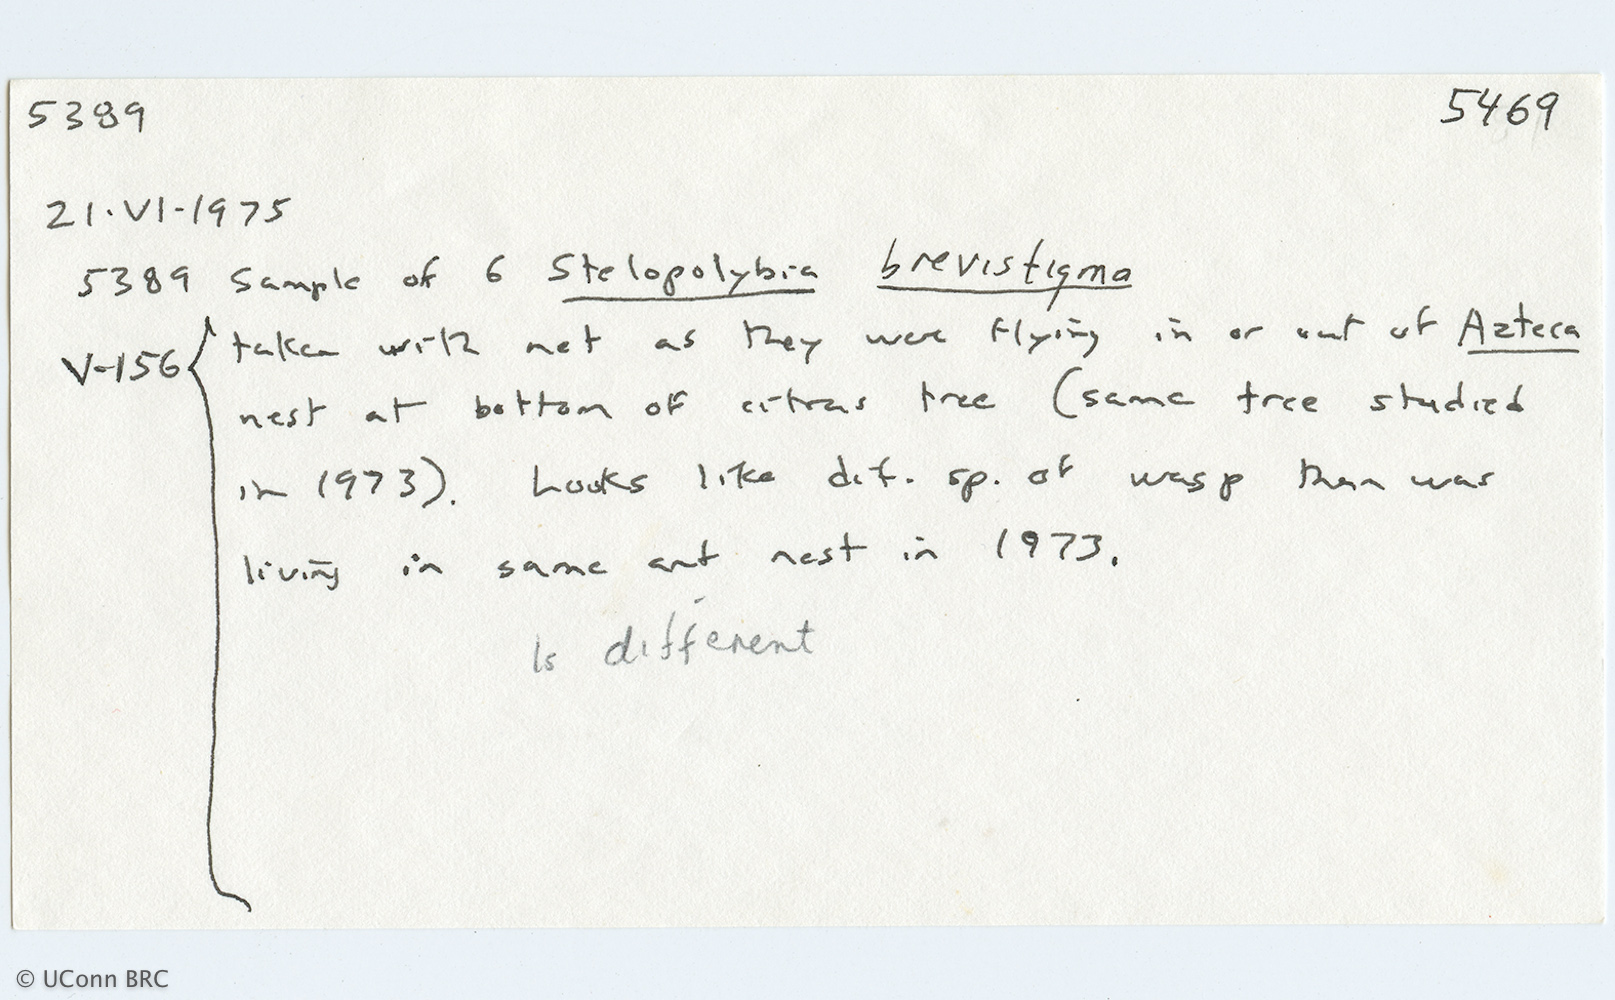 5389 5469
21·VI-1975
5389 Sample of 6 Stelopolybia brevistigma
V-156 { taken with net as they were flying in or out of Azteca
nest at bottom of citrus tree (same tree studied
in 1973). Looks like dif. sp. of wasp than was
living in same ant nest in 1973.
Is different
© UConn BRC